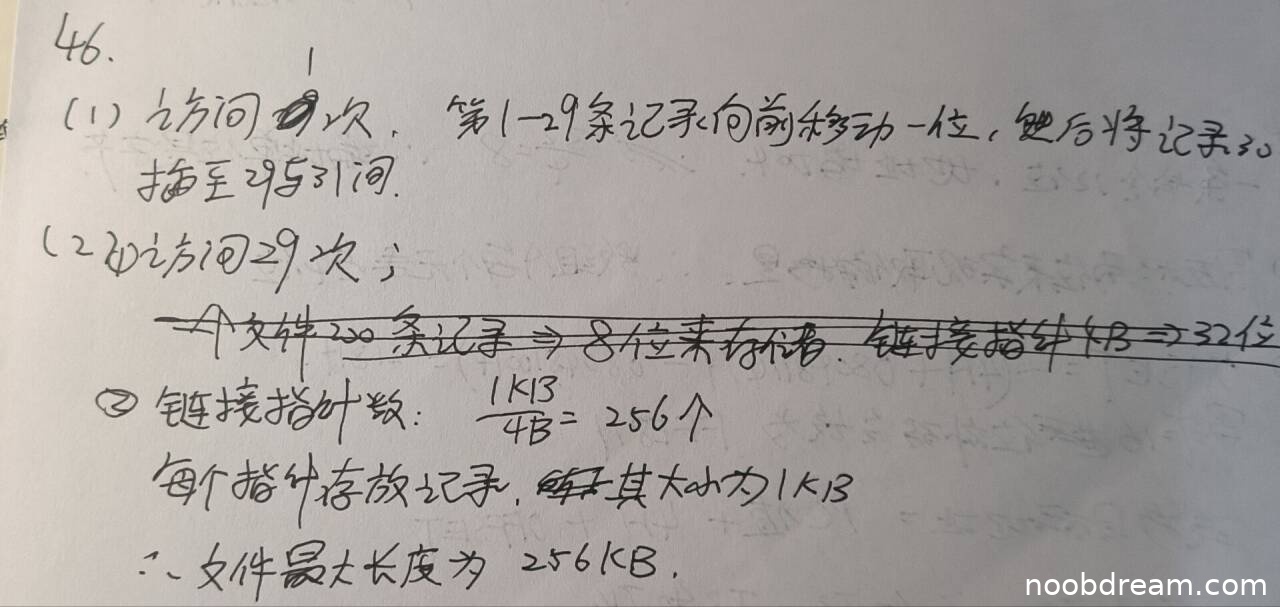 46.
1
(1) 访问 次. 第1-29条记录向前移动一位, 然后将记录30
插至29与31间.
(2) ① 访问29次;
一个文件200条记录 ⇒ 8位来存储. 链接指针4B ⇒ 32位
② 链接指针数: 1KB/4B = 256个
每个指针存放记录, 其大小为1KB
∴ 文件最大长度为 256KB.
noobdream.com